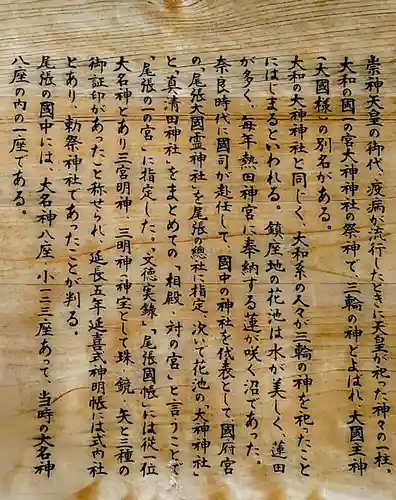 崇神天皇の御代、疫病が流行したときに天皇が祀った神々の一柱。
大和の國一の宮大神神社の祭神で、三輪の神とよばれ、大國主神
(大國様)の別名がある。
大和の大神神社と同じく、大和系の人々が三輪の神を祀ったこと
にはじまるといわれる。鎮座地の花池は水が美しく、蓮田
が多く、毎年熱田神宮に奉納する蓮が咲く沼であった。
奈良時代に國司が赴任して、國中の神社を代表として、國府宮
の「尾張大國霊神社」を尾張の総社に指定、次いで花池の「大神神社」
と「真清田神社」をまとめての「相殿・対の宮」と言うことで
「尾張の一の宮」に指定した。「文徳実録」「尾張國帳」には従一位
大名神とあり三宮明神、三明神の神宝として珠、鏡、矢と三種の
御証印があった」と称せられ、延長五年延喜式神明帳は式内社
とあり、勅祭神社であったことが判る。
尾張の國中には、大名神八座、小一二三座あって、当時の大名神
八座の内の一座である。